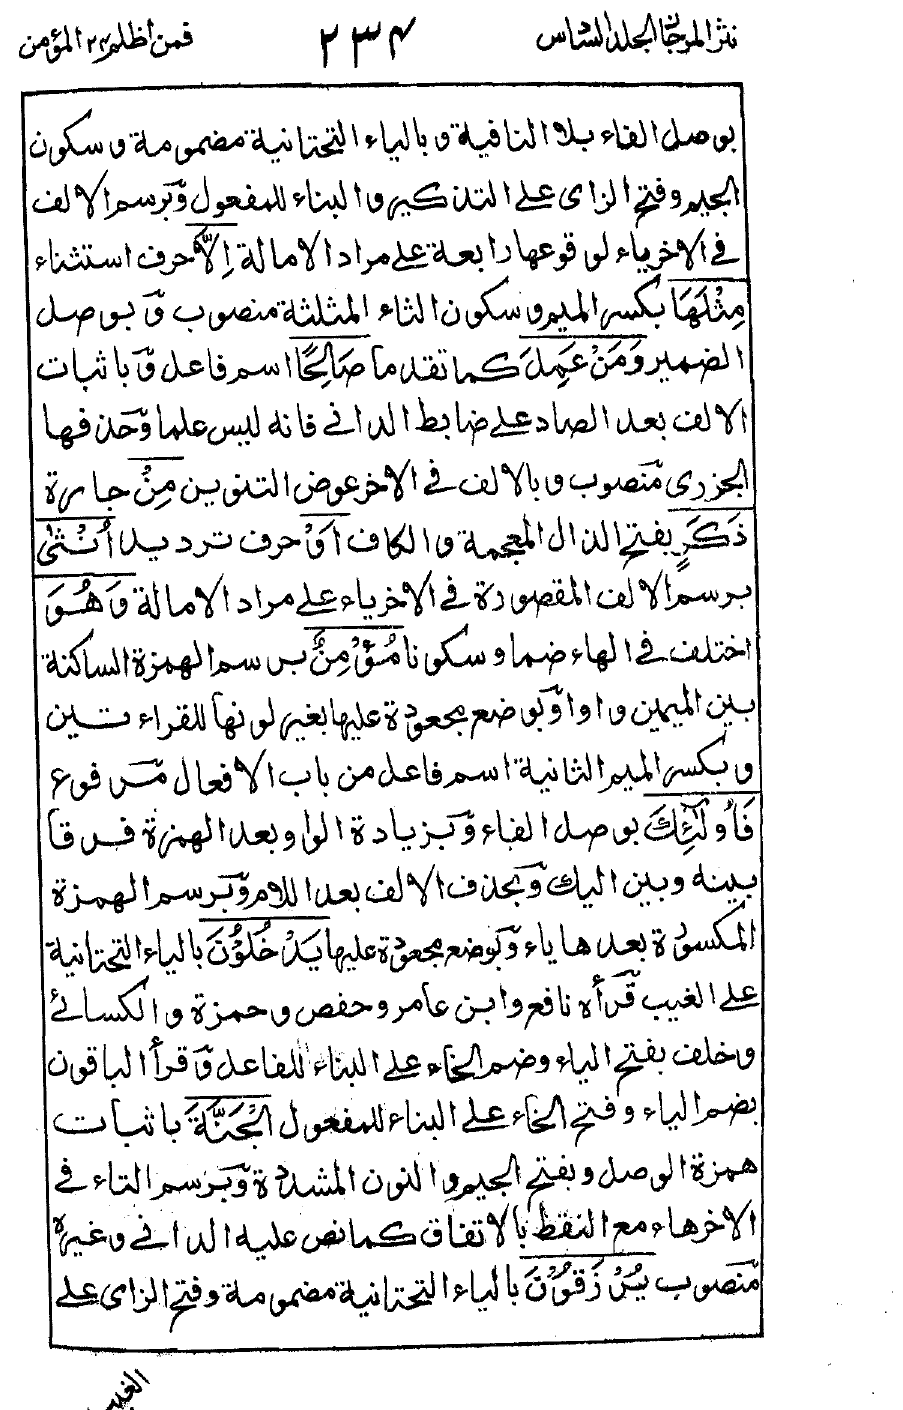 نثر المرجان الجلد السادس ٢٣٤ فمن أظلم ٢٤ المؤمن
بوصل الفاء بلا النافية وبالياء التحتانية مضمومة وسكون
الجيم وفتح الزاى على التذكير والبناء للمفعول وبرسم الالف
في الاخر ياء لوقوعها رابعة على مراد الامالة اِلَّا حرف استثناء
مِثْلَهَا بكسر الميم وسكون الثاء المثلثة منصوب وبوصل
الضمير وَمَنْ عَمِلَ كما تقدما صَالِحًا اسم فاعل وباثبات
الالف بعد الصاد على ضابط الداني فانه ليس علما وحذفها
الجزرى منصوب وبالالف في الاخر عوض التنوين مِنْ جارة
ذَكَرٍ بفتح الذال المعجمة والكاف اَوْ حرف ترديد اُنْثٰى
برسم الالف المقصورة في الاخر ياء على مراد الامالة وَهُوَ
اختلف في الهاء ضما وسكونا مُؤْمِنٌ برسم الهمزة الساكنة
بين الميمين واوا وبوضع مجعودة عليها بغير لونها للقراءتين
وبكسر الميم الثانية اسم فاعل من باب الافعال مرفوع
فَاُولٰٓئِكَ بوصل الفاء وبزيادة الواو بعد الهمزة فرقا
بينه وبين اليك وبحذف الالف بعد اللام وبرسم الهمزة
المكسورة بعدها ياء وبوضع مجعودة عليها يَدْخُلُوْنَ بالياء التحتانية
على الغيب قرأه نافع وابن عامر وحفص وحمزة والكسائے
وخلف بفتح الياء وضم الخاء على البناء للفاعل وقرأ الباقون
بضم الياء وفتح الخاء على البناء للمفعول الْجَنَّةَ باثبات
همزة الوصل وبفتح الجيم والنون المشددة وبرسم التاء في
الاخر هاء مع النقط بالاتفاق كما نص عليه الداني وغيره
منصوب يُرْزَقُوْنَ بالياء التحتانية مضمومة وفتح الزاى على